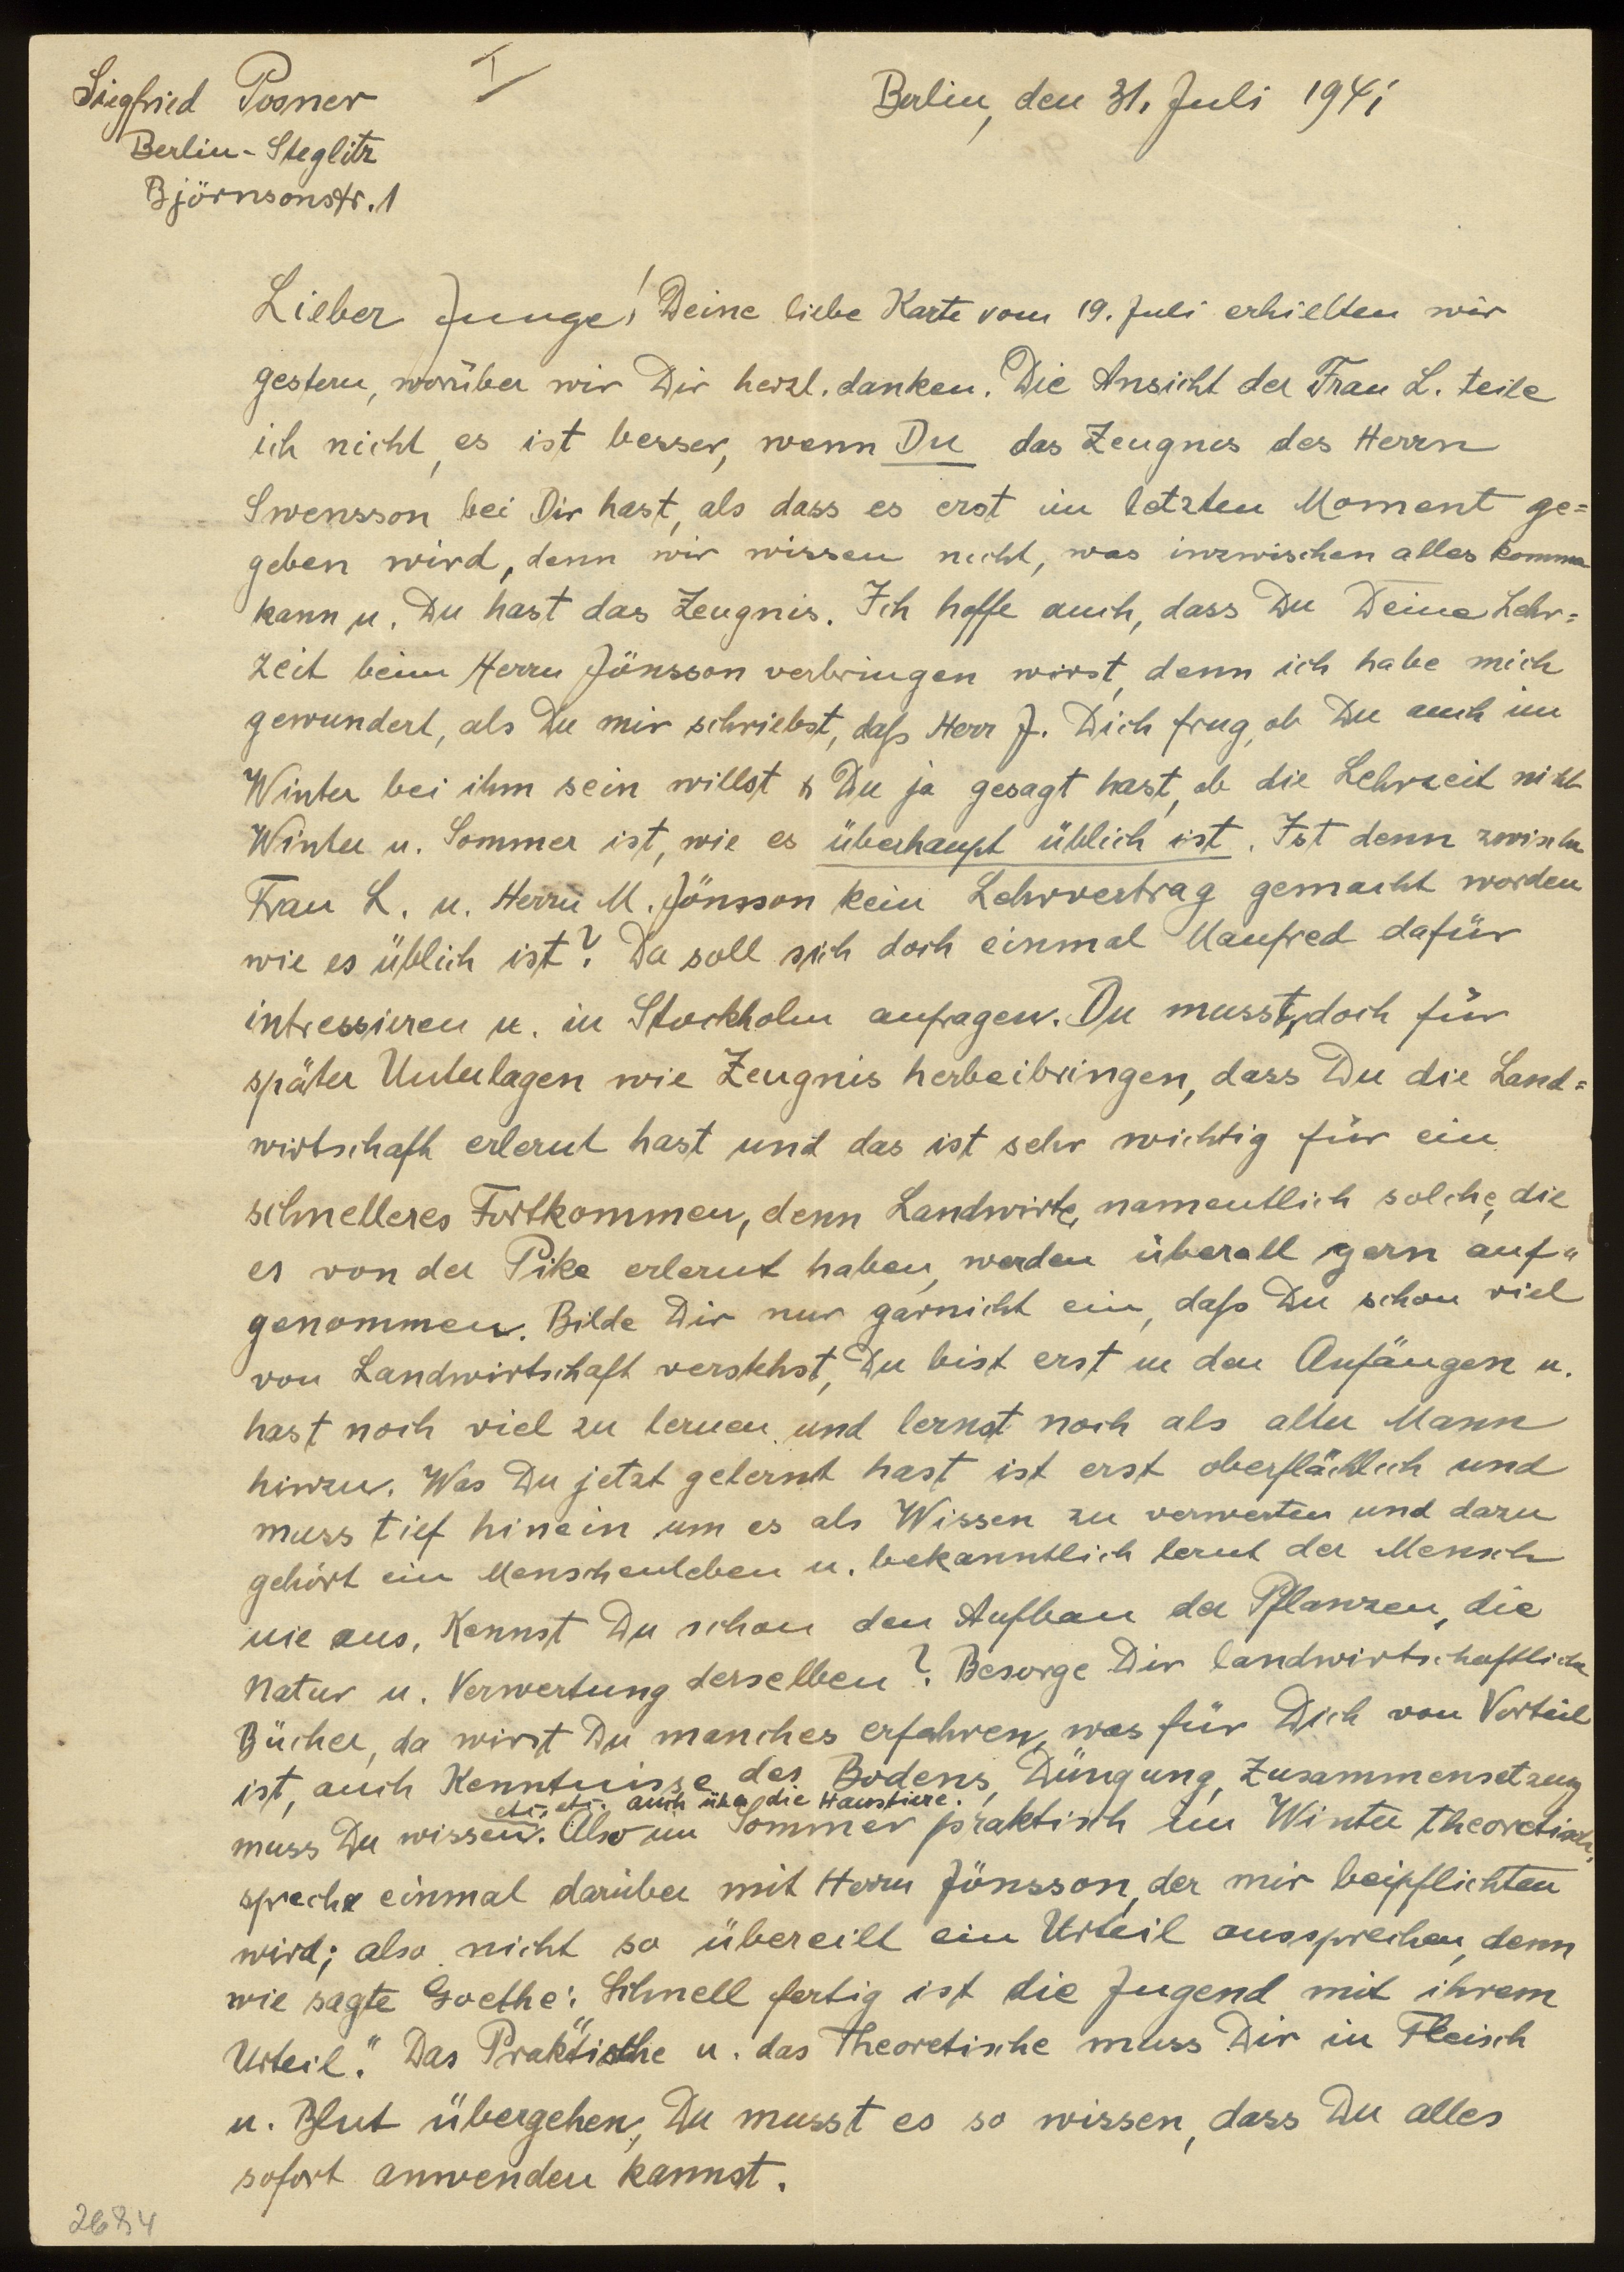 Siegfried Posner
I
Berlin, den 31. Juli 1941
Berlin-Steglitz
Björnsonstr. 1
Lieber Junge! Deine liebe Karte vom 19. Juli erhielten wir
gestern, worüber wir Dir herzl. danken. Die Ansicht der Frau L. teile
ich nicht, es ist besser, wenn Du das Zeugnis des Herrn
Swensson bei Dir hast, als dass es erst im letzten Moment ge=
geben wird, denn wir wissen nicht, was inzwischen alles kommen
kann u. Du hast das Zeugnis. Ich hoffe auch, dass Du Deine Lehr=
zeit beim Herrn Jönsson verbringen wirst, denn ich habe mich
gewundert, als Du mir schriebst, daß Herr J. Dich frug, ob Du auch im
Winter bei ihm sein willst & Du ja gesagt hast, ob die Lehrzeit nicht
Winter u. Sommer ist, wie es überhaupt üblich ist. Ist denn zwischen
Frau L. u. Herrn M. Jönsson kein Lehrvertrag gemacht worden
wie es üblich ist? Da soll sich doch einmal Manfred dafür
intressieren u. in Stockholm anfragen. Du musst doch für
später Unterlagen wie Zeugnis herbeibringen, dass Du die Land=
wirtschaft erlernt hast und das ist sehr wichtig für ein
schnelleres Fortkommen, denn Landwirte, namentlich solche, die
es von der Pike erlernt haben, werden überall gern auf=
genommen. Bilde Dir nur garnicht ein, daß Du schon viel
von Landwirtschaft verstehst, Du bist erst in den Anfängen u.
hast noch viel zu lernen und lernst noch als alter Mann
hinzu. Was Du jetzt gelernt hast ist erst oberflächlich und
muss tief hinein um es als Wissen zu verwerten und dazu
gehört ein Menschenleben u. bekanntlich lernt der Mensch
nie aus. Kennst Du schon den Aufbau der Pflanzen, die
Natur u. Verwertung derselben? Besorge Dir landwirtschaftliche
Bücher, da wirst Du manches erfahren, was für Dich von Vorteil
ist, auch Kenntnisse des Bodens, Düngung, Zusammensetzung
etc. etc. auch über die Haustiere.
muss Du wissen. Also im Sommer praktisch im Winter theoretisch,
spreche einmal darüber mit Herrn Jönsson, der mir beipflichten
wird; also nicht so übereilt ein Urteil aussprechen, denn
wie sagte Goethe: „Schnell fertig ist die Jugend mit ihrem
Urteil." Das Praktische u. das Theoretische muss Dir in Fleisch
u. Blut übergehen, Du musst es so wissen, dass Du alles
sofort anwenden kannst.
2684